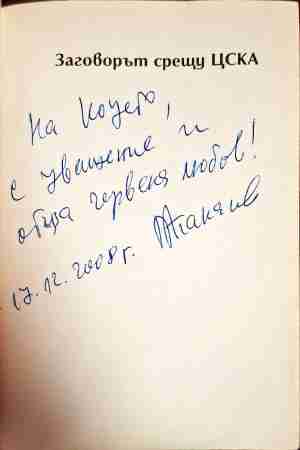 Заговорът срещу ЦСКА
На Коцето,
с уважение и
обща червена любов!
17.12.2008 г.